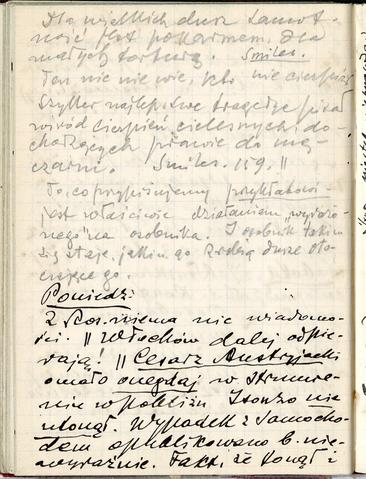 Dla wielkich dusz samot-
ność jest pokarmem, dla
małych torturą. Smiles.
Ten nic nie wie, kto nie cierpiał
Szyller najlepsze tragedye pisał
wśród cierpień cielesnych do-
chodzących prawie do mę-
czarni. Smiles. 159. ||
To, co przypisujemy przykładowi
jest właściwie działaniem "wyżło-
nego" na osobnika. I osobnik takim
się staje, jakim go zrobią dusze oto-
czające go.
Poniedz:
Z Kos. niema nic wiadomo-
ści. || Włochów dalej odpie-
rają! || Cesarz Austryjacki
omało onegdaj w Strumie-
niu w pobliżu Isonzo nie
utonął. Wypadek z samocho-
dem opublikowano b. nie-
wyraźnie. Fakt, że tonął i